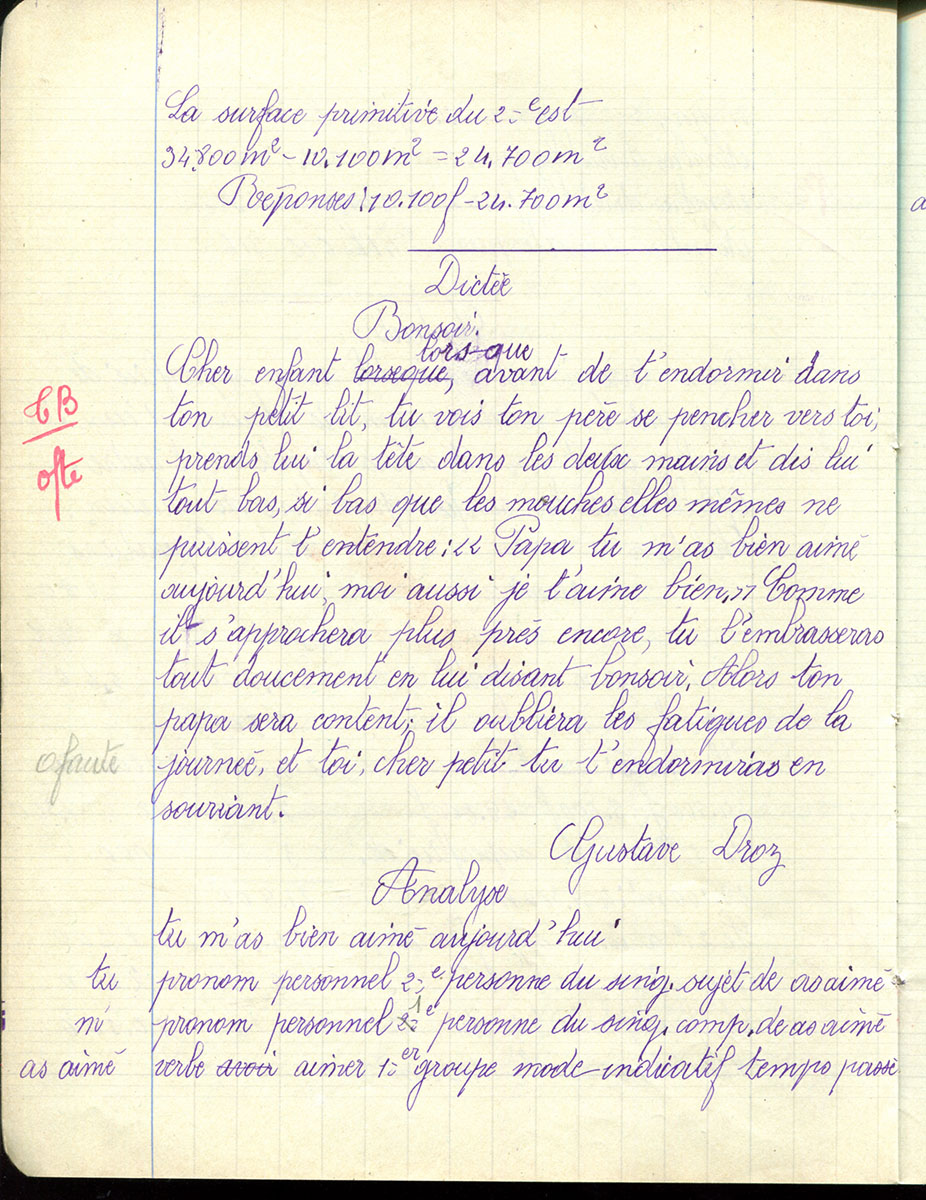 La surface primitive du 2e est
34.800m² - 10.100m² = 24.700m²
Réponses : 10.100f - 24.700m²
Dictée
Bonsoir.
lors-que
Cher enfant lorseque, avant de t'endormir dans
TB
ton petit lit, tu vois ton père se pencher vers toi,
prends lui la tête dans les deux mains et dis lui
ofte
tout bas, si bas que les mouches elles mêmes ne
puissent l'entendre : << Papa tu m'as bien aimé
aujourd'hui, moi aussi je t'aime bien, >> Comme
il s'approchera plus près encore, tu l'embrasseras
tout doucement en lui disant bonsoir. Alors ton
papa sera content ; il oubliera les fatigues de la
0 faute
journée, et toi, cher petit tu t'endormiras en
souriant.
Gustave Droz
Analyse
tu m'as bien aimé aujourd'hui
tu pronom personnel 2e personne du sing. sujet de as aimé
m' pronom personnel 2 1e personne du sing. comp. de as aimé
as aimé verbe avoir aimer 1er groupe mode indicatif temps passé